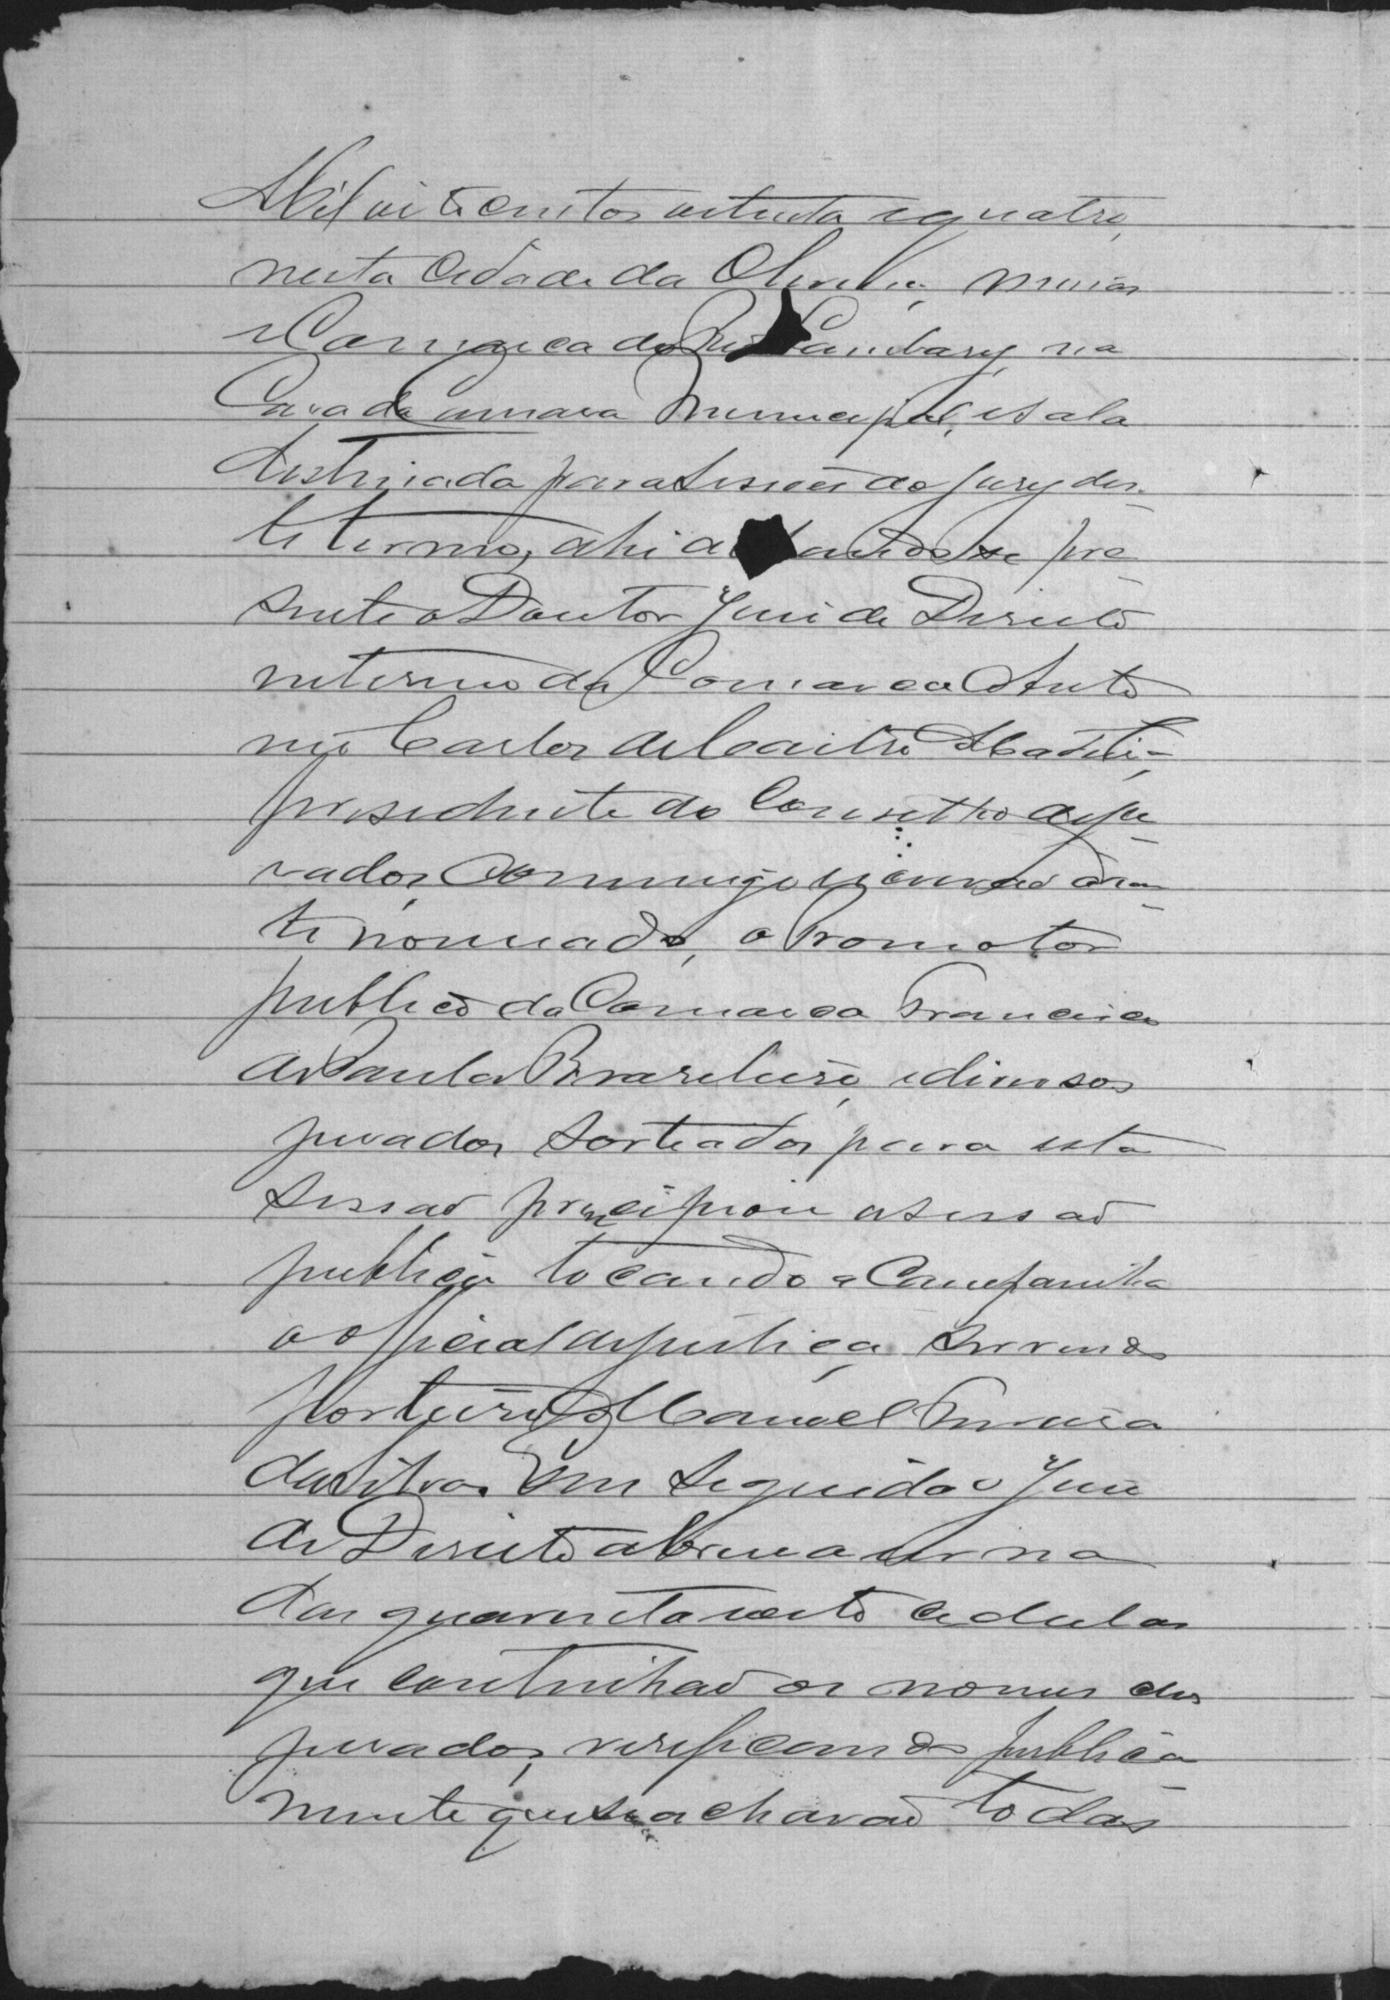 Mil oitocentos oitenta e quatro,
nesta Cidade da Oliveira, Minas
e Comarca do Rio Lambary, na
Casa da Camara Municipal, e sala
destinada para sessoes do Jury des-
te termo, ahi achando se pre-
sente o Doutor Juiz de Direito
interino da Comarca Anto
nio Carlos de Castro Madeli-
presidente do Conselho de ju-
rados, Commigo escrivão adian-
te nomeado, o Promotor
publico da Comarca Francisco
de Paula Brasileiro, e diversos
jurados sorteados para esta
sessão principiou a sessão
publica tocando a Campainha
o official de justiça servindo
porteiro Manoel Pereira
da Silva. Em seguida o Juiz
de Direito abrio a urna
das quarenta e oito cedulas
que continhão os nomes dos
jurados, verificando publica
mente que se achavão todas